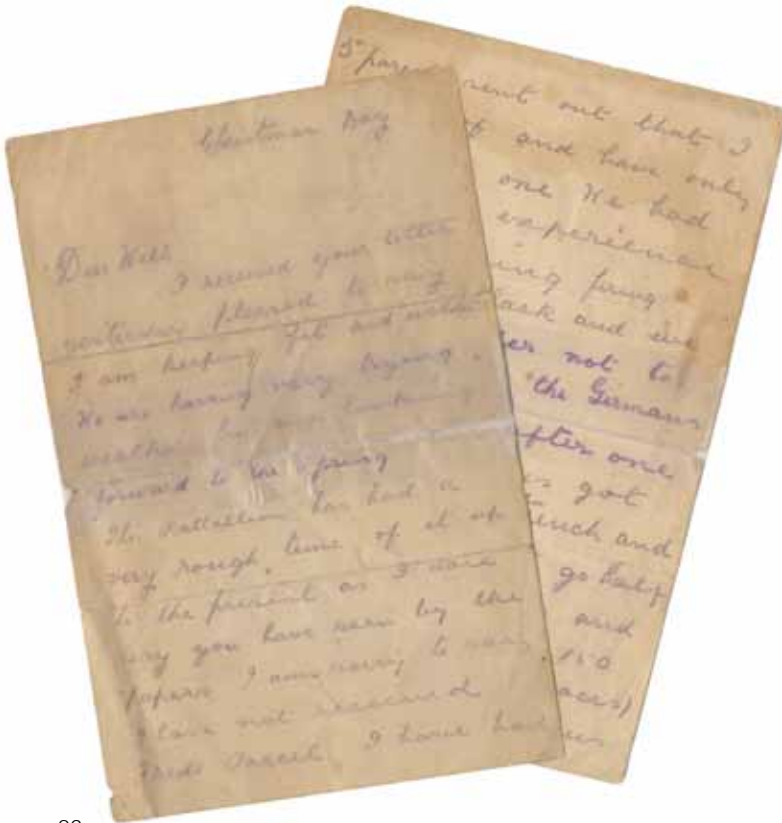 Christmas Day
Dear Will
I received your letter
yesterday pleased to say
I am keeping fit and well
We are having very trying
weather but am looking
forward to the Spring
The Battallion has had a
very rough time of it up
to the present as I dare
say you have seen by the
papers I am sorry to say
I have not received
Freds Parcel I have had
5 parcels sent out that I
and have only
one We had
experience
firing
ask and we
not to
the Germans
after one
got
trench and
go half
and
150
us